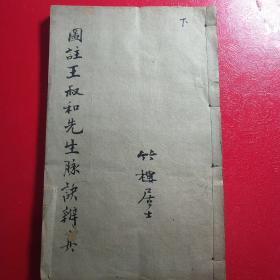 圖註王叔和先生脉訣辨真
下
竹樓居士